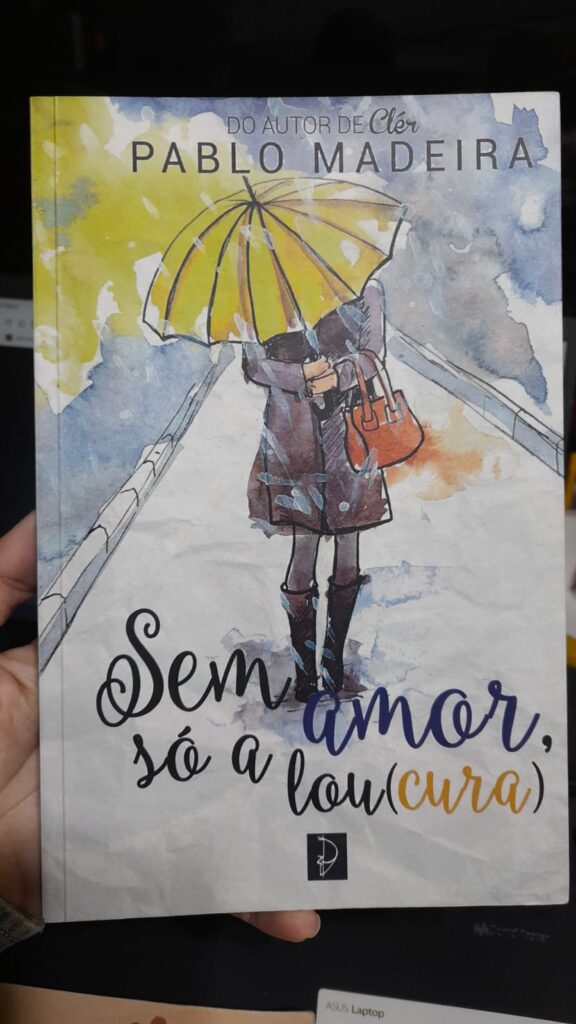 DO AUTOR DE Clér
PABLO MADEIRA
Sem amor,
só a lou(cura)
ASUS Laptop